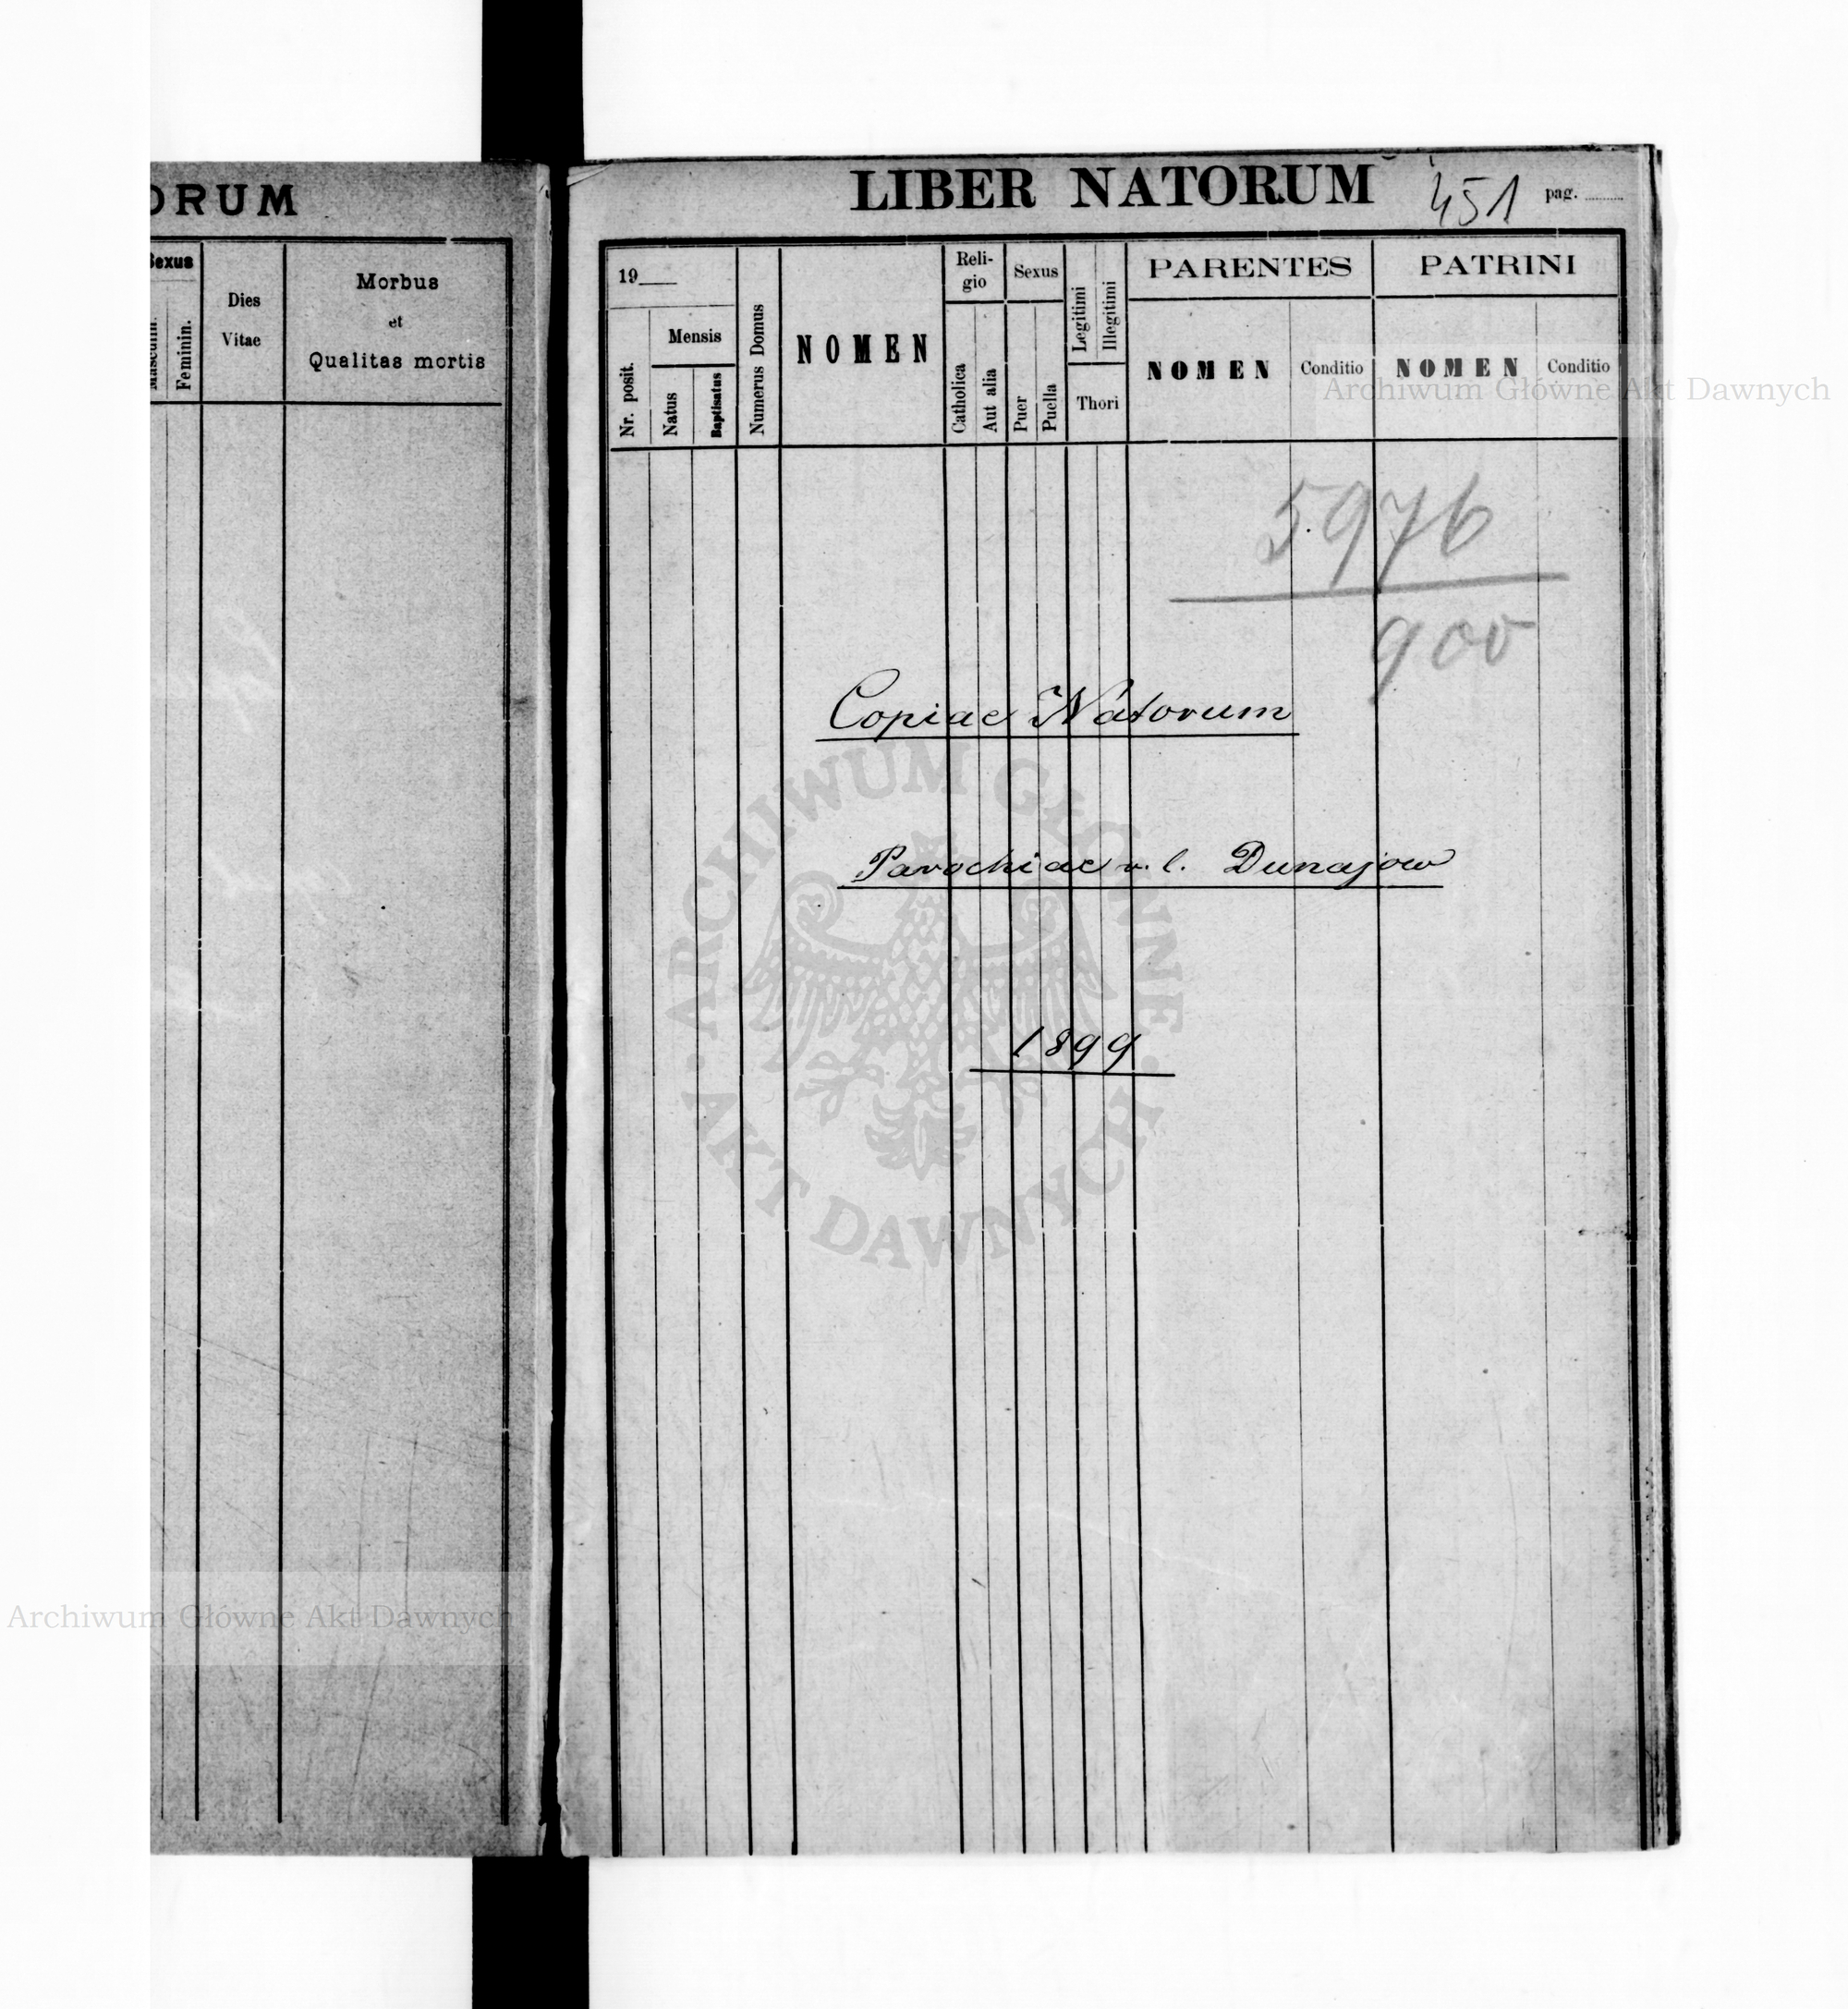 ORUM
Sexus
Masculin.
Feminin.
Dies
Vitae
Morbus
et
Qualitas mortis
LIBER NATORUM
451
pag.
19
Nr. posit.
Mensis
Natus
Baptisatus
Numerus Domus
NOMEN
Reli-
gio
Catholica
Aut alia
Sexus
Puer
Puella
Legitimi
Illegitimi
Thori
PARENTES
NOMEN
Conditio
PATRINI
NOMEN
Conditio
5976
900
Copiae Natorum
Parochiae r. l. Dunajow
1899
ARCHIWUM GŁÓWNE
AKT DAWNYCH
Archiwum Główne Akt Dawnych
Archiwum Główne Akt Dawnych